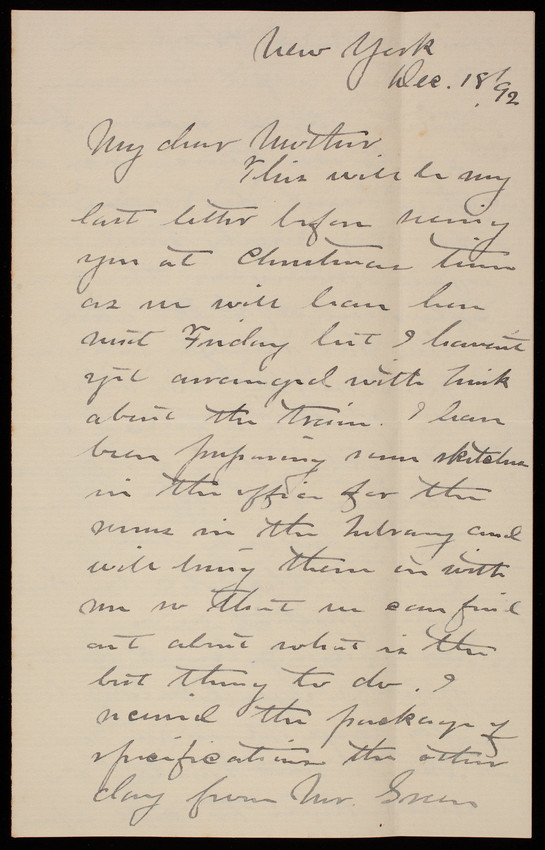 New York
Dec. 18/92
My dear Mother
This will be my
last letter before seeing
you at Christmas time
as we will leave here
next Friday but I haven't
yet arranged with
about the train. I have
been preparing some sketches
in the office for the
rooms in the library and
will bring them on with
me so that we can find
out about what is the
best thing to do. I
received the package of
specifications the other
day from Mr. Green